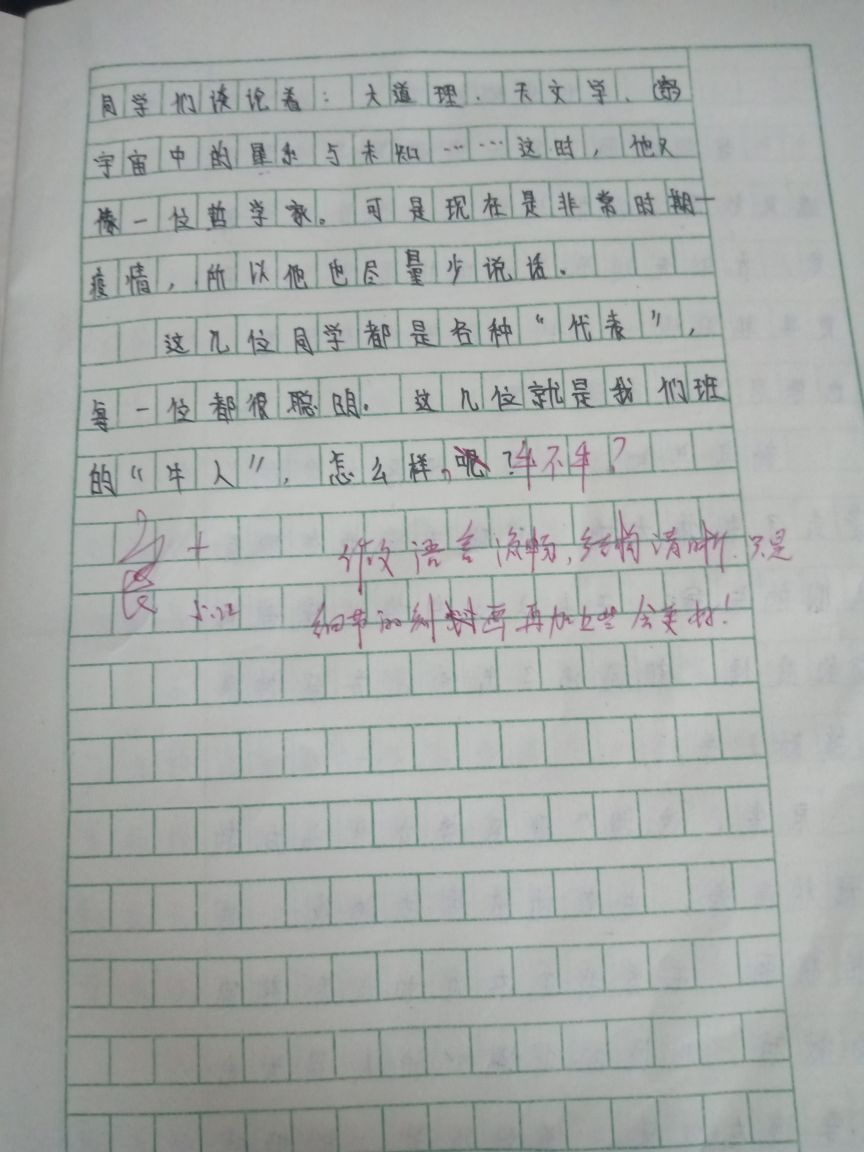 同学们谈论着：大道理、天文学、
宇宙中的星系与未知……这时，他又
像一位哲学家。可是现在是非常时期—
疫情，所以他也尽量少说话。
这几位同学都是各种“代表”，
每一位都很聪明。这几位就是我们班
的“牛人”，怎么样，呢？牛不牛？
作文语言流畅，结构清晰，只是
细节的刻画再加上些会更好！